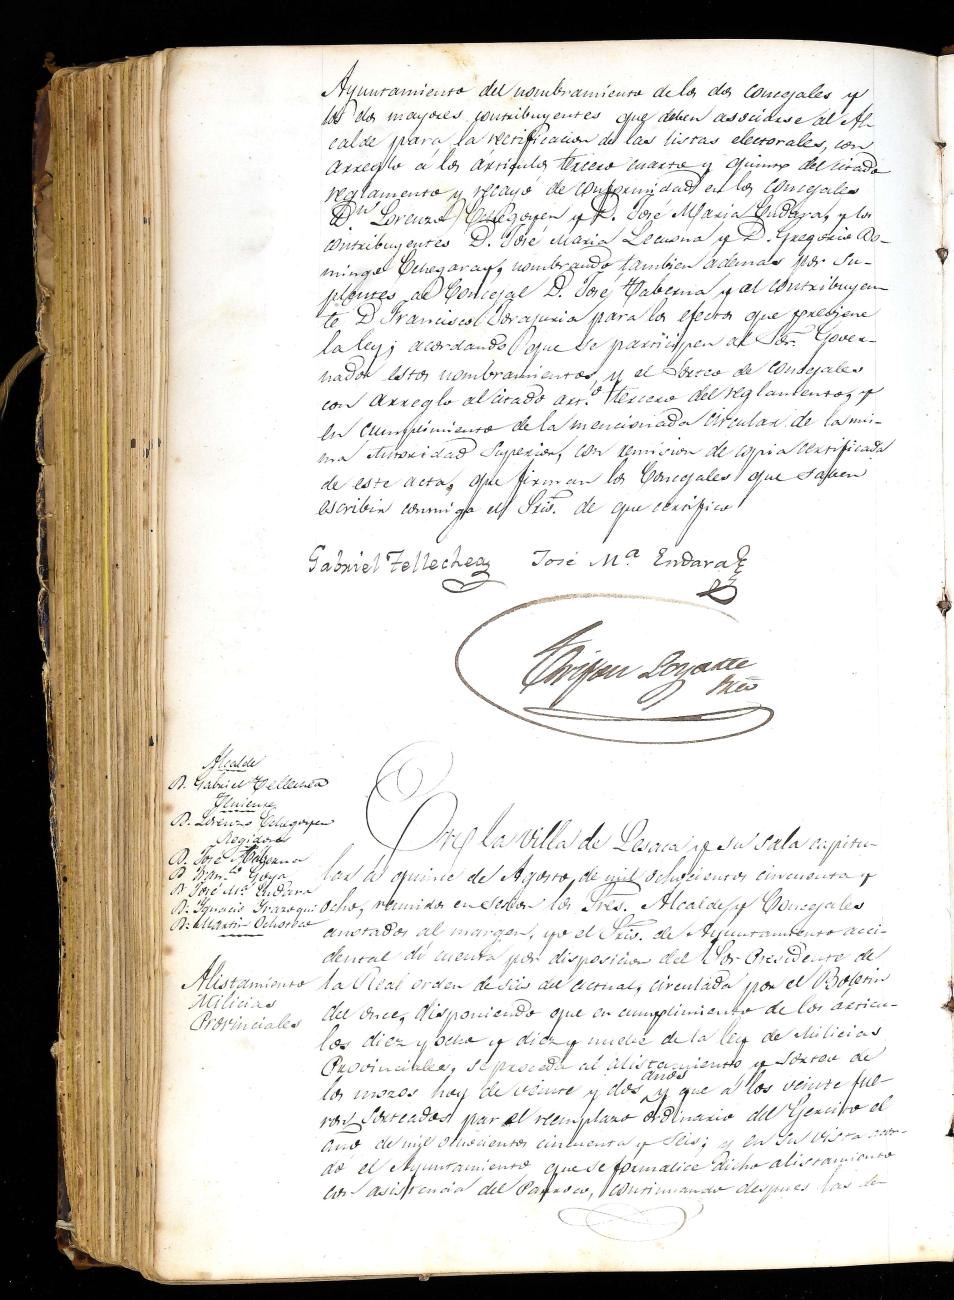 Ayuntamiento del nombramiento de los dos concejales y
los dos mayores contribuyentes que deben asociarse al Al-
calde para la rectificacion de las listas electorales, con
arreglo a los articulos tercero cuarto y quinto del citado
reglamento y recayó de conformidad en los concejales
Dn. Lorenzo Echegoyen y D. José Maria Endara, y los
contribuyentes D. José Maria Lecuona y D. Gregorio Do-
mingo Echegaray, nombrando tambien ademas por Su-
plentes de Concejal D. José Taberna y al contribuyen-
te D Francisco Sorajuria para los efectos que previene
la ley; acordando que se participen al Sor. Gover-
nador estos nombramientos, y el Sorteo de concejales
con arreglo al citado arto. tercero del reglamento, y
en cumplimiento de la mencionada circular de la mis-
ma Autoridad Superior, con remision de copia certificada
de este acta, que firman los Concejales que saben
escribir conmigo el Srio. de que certifico
Gabriel Tellechea José Ma. Endara
Lozante
Srio
Alcalde
D. Gabriel Tellechea
Teniente
D. Lorenzo Echegoyen
Regidores
D. José Taberna
D Franco. Goya
D José Ma. Endara
D. Ignacio Irazoqui
D. Martin Ochoteco
Alistamiento
Milicias
Provinciales
En la villa de Lesaca y su sala capitu-
lar á quince de Agosto de mil ochocientos cincuenta y
ocho, reunidos en sesion los Sres. Alcalde y Concejales
anotados al margen, yo el Srio. de Ayuntamiento acci-
dental dí cuenta por disposicion del Sor Presidente de
la Real orden de seis del actual, circulada por el Boletin
del once, disponiendo que en cumplimiento de los articu-
los diez y ocho y diez y nueve de la ley de Milicias
Provinciales, se proceda al alistamiento y sorteo de
los mozos hoy de veinte y dos años y que a los veinte fue-
ron Sorteados par el reemplazo ordinario del Ejercito el
año de mil ochocientos cincuenta y seis; y en su vista acor-
dó el Ayuntamiento que se formalice dicho alistamiento
con asistencia del Parroco, continuando despues las de-